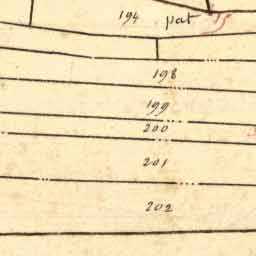 194 pat
198
199
200
201
202